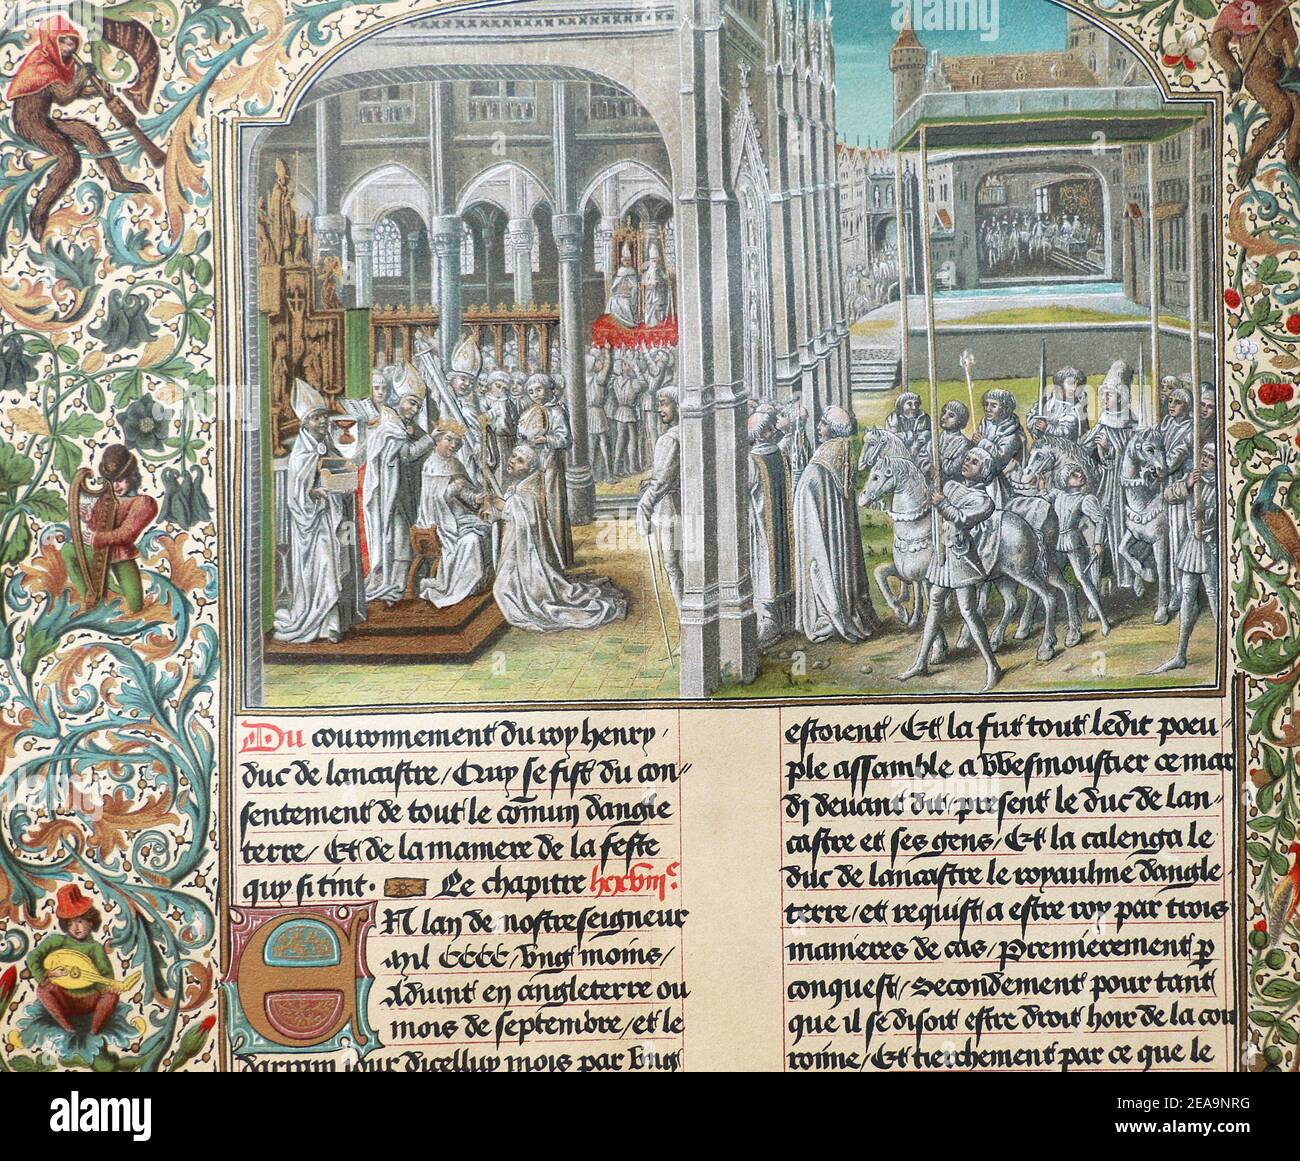 Du couronnement du roy henry,
duc de lancastre / Quy se fist du con=
sentement de tout le cõmun dangle
terre / Et de la maniere de la feste
quy si tint. Le chapitre
EN lan de nostre seigneur
mil CCCC / ung moins /
Advint en angleterre ou
mois de septembre / et le
darrain jour dicelluy mois par ung
estoient / Et la fut tout ledit peu=
ple assamble a Wesmoustier ce mar
di devant dit / present le duc de lan=
castre et ses gens / Et la calenga le
duc de lancastre le royaulme dangle
terre / et requist a estre roy par trois
manieres de cas / Premierement p
conquest / Secondement pour tant
que il se disoit estre droit hoir de la cou
ronne / Et tierchement par ce que le
alamy
Image ID: 2EA9NRG
www.alamy.com